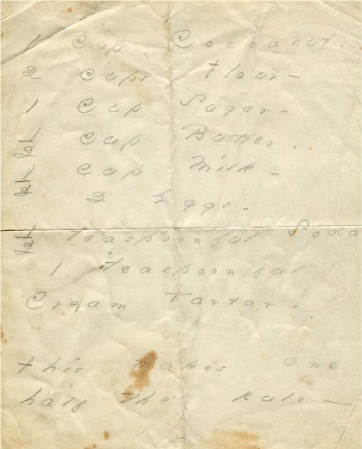 1 Cup. Cocoanut.
2 Cups Flour-
1 Cup Sugar-
1/2 Cup Butter.
1/2 Cup Milk-
2 Eggs-
1/2 teaspoonful Soda
1 teaspoonful
Cream Tartar.
this makes one
half the Rule-